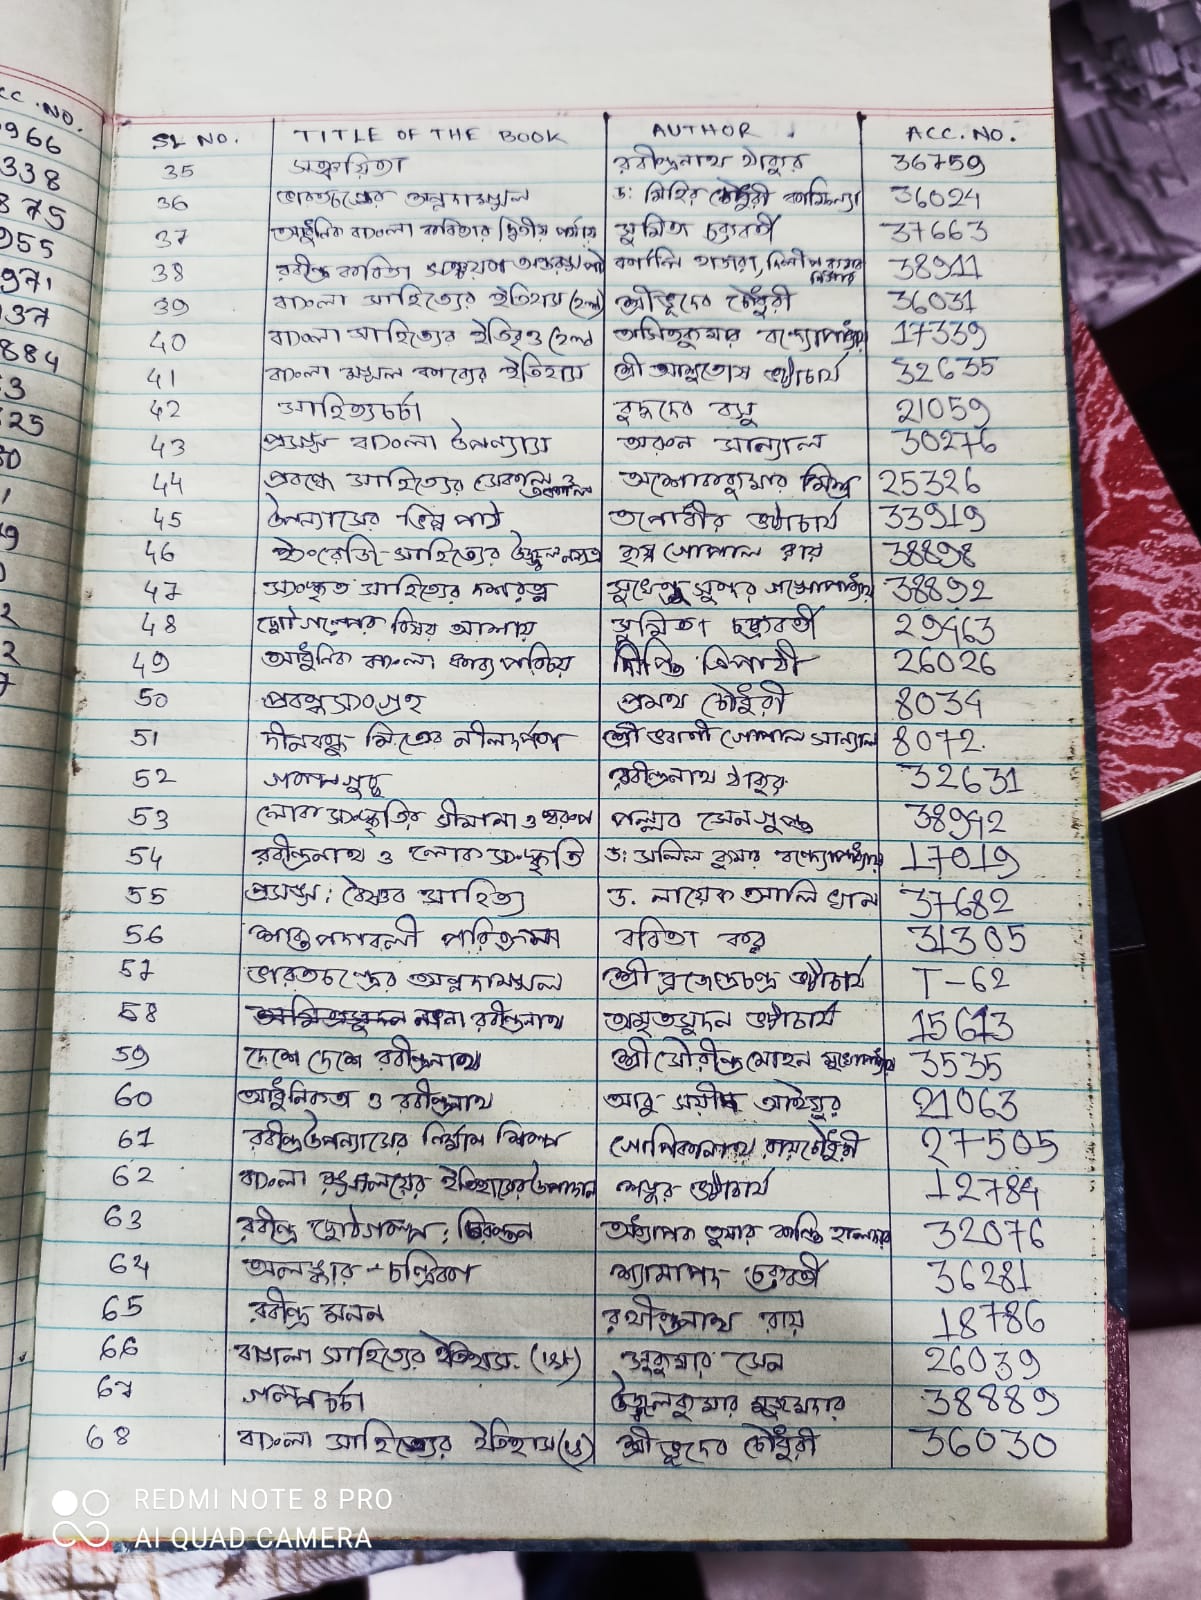 CC. NO.
966
338
875
955
971
937
884
3
25
SL NO. TITLE OF THE BOOK AUTHOR ACC. NO.
35 সঞ্চয়িতা রবীন্দ্রনাথ ঠাকুর 36759
36 ভারতচন্দ্রের অন্নদামঙ্গল ড: মিহির চৌধুরী কামিল্যা 36024
37 আধুনিক বাংলা কবিতার দ্বিতীয় পর্যায় সুমিতা চক্রবর্তী 37663
38 রবীন্দ্র কবিতা হাজরা, দিলীপ কুমার 38911
39 বাংলা সাহিত্যের ইতিহাস শ্রীভূদেব চৌধুরী 36031
40 বাংলা সাহিত্যের ইতিবৃত্ত অসিতকুমার বন্দ্যোপাধ্যায় 17339
41 বাংলা মঙ্গল কাব্যের ইতিহাস শ্রী আশুতোষ ভট্টাচার্য 32635
42 সাহিত্যচর্চা বুদ্ধদেব বসু 21059
43 প্রসঙ্গ বাংলা উপন্যাস অরুন সান্যাল 30276
44 প্রবন্ধে সাহিত্যের সেকাল ও একাল অশোককুমার মিশ্র 25326
45 উপন্যাসের ভিন্ন পাঠ তপোধীর ভট্টাচার্য 33919
46 ইংরেজি সাহিত্যের উজ্জ্বল নক্ষত্র কৃষ্ণ গোপাল রায় 38898
47 সংস্কৃত সাহিত্যের দশরত্ন সুখেন্দু সুন্দর গঙ্গোপাধ্যায় 38892
48 ছোটগল্পের বিষয় আশয় সুমিতা চক্রবর্তী 29463
49 আধুনিক বাংলা কাব্য পরিচয় দীপ্তি ত্রিপাঠী 26026
50 প্রবন্ধ সংগ্রহ প্রমথ চৌধুরী 8034
51 দীনবন্ধু মিত্রের নীলদর্পণ শ্রী ভবানী গোপাল সান্যাল 8072.
52 গল্পগুচ্ছ রবীন্দ্রনাথ ঠাকুর 32631
53 লোক সংস্কৃতির সীমানা ও স্বরূপ পল্লব সেনগুপ্ত 38942
54 রবীন্দ্রনাথ ও লোক সংস্কৃতি ড: সলিল কুমার বন্দ্যোপাধ্যায় 17019
55 প্রসঙ্গ: বৈষ্ণব সাহিত্য ড. লায়েক আলি খান 37682
56 শাক্ত পদাবলী পরিক্রমা ববিতা বসু 31305
57 ভারতচন্দ্রের অন্নদামঙ্গল শ্রী ব্রজেন্দ্রচন্দ্র ভট্টাচার্য T-62
58 রবীন্দ্রনাথ অমৃতসুদন ভট্টাচার্য 15613
59 দেশে দেশে রবীন্দ্রনাথ শ্রী সৌরীন্দ্র মোহন মুখোপাধ্যায় 3535
60 আধুনিকতা ও রবীন্দ্রনাথ আবু সয়ীদ আইয়ুব 21063
61 রবীন্দ্র উপন্যাসের নির্মাণ শিল্প গোপিকানাথ রায়চৌধুরী 27505
62 বাংলা রঙ্গালয়ের ইতিহাসের উপাদান শঙ্কর ভট্টাচার্য 12784
63 রবীন্দ্র ছোটগল্প: চিরন্তন অধ্যাপক তুষার কান্তি হালদার 32076
64 অলঙ্কার-চন্দ্রিকা শ্যামাপদ চক্রবর্তী 36281
65 রবীন্দ্র মনন রথীন্দ্রনাথ রায় 18786
66 বাঙ্গলা সাহিত্যের ইতিহাস. সুকুমার সেন 26039
67 গল্পচর্চা উজ্জ্বলকুমার মজুমদার 38889
68 বাংলা সাহিত্যের ইতিহাস শ্রীভূদেব চৌধুরী 36030
REDMI NOTE 8 PRO
AI QUAD CAMERA